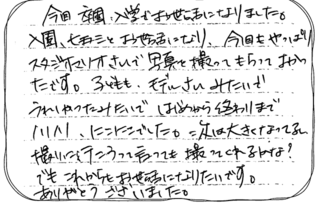 今回、卒園、入学でお世話になりました。
入園、七五三とお世話になり、今回もやっぱり
スタジオマリオさんで写真を撮ってもらってよかっ
たです。子どもも、モデルさんみたいで
うれしかったみたいで はじめから終わりまで
ﾉﾘﾉﾘ、にこにこでした。次は大きくなってるし
撮りに行こうって言っても 撮ってくれるかな?
でも これからもお世話になりたいです。
ありがとう ございました。